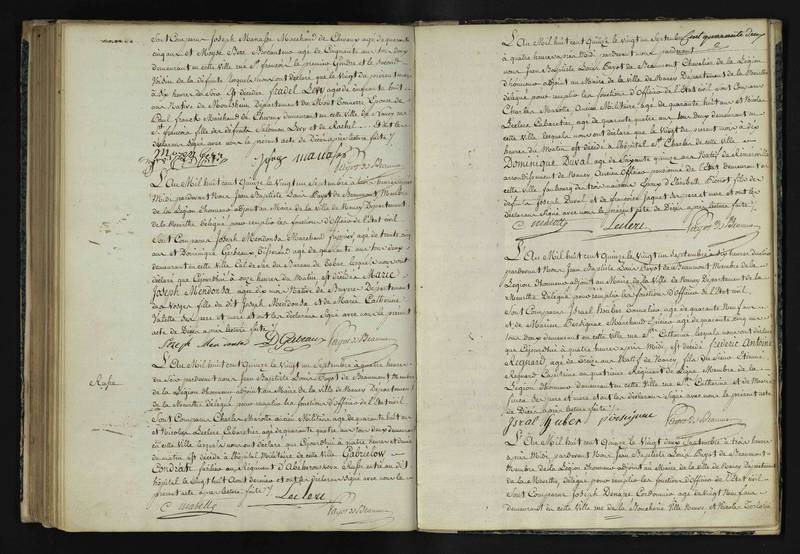 Sont Comparus Joseph Manasse Marchand de Chevaux agé de quarante
cinq ans et Moyse Bere Brocanteur agé de Cinquante ans tous deux
demeurant en cette Ville rue St françois le premier Gendre et le second
Voisin de la défunte lesquels nous ont déclaré que le Vingt du présent mois
à Six heures du Soir Est décédée fradel Levy agée de cinquante huit
ans Native de Département du Mont Epouse de
Paul franck Marchand de Chevaux demeurant en cette Ville de Nancy rue
St françois fille de défunts Salomon Levy et de Rachel Et ont les
déclarans Signé avec nous le présent acte de Décès après lecture faite
Joseph manasse
Payot de Beaumont
L'An Mil huit cent Quinze le Vingt un Septembre à trois heures après
Midi pardevant nous Jean Baptiste Louis Payot de Beaumont Membre
de la Légion d'honneur adjoint au Maire de la Ville de Nancy Département
de la Meurthe délégué pour remplir les fonctions d'Officier de l'Etat civil
Sont Comparus Joseph Mendonsa Marchand fripier agé de trente cinq
ans et Dominique Gerbeaux agé de quarante ans tous deux
demeurant en cette Ville du Bureau de lesquels nous ont
déclaré que Cejourd'hui à onze heures du Matin est décédée Marie
Joseph Mendonsa agée dix mois Native de Bruyere Département
des Vosges fille du dit Joseph Mendonsa et de Marie Catherine
Valette ses pere et mere et ont les déclarans Signé avec nous le présent
acte de Décès après lecture faite
Joseph Mendonsa D Gerbeaux Payot de Beaumont
Russe
L'An Mil huit cent Quinze le Vingt un Septembre à quatre heures
du Soir pardevant nous Jean Baptiste Louis Payot de Beaumont Membre
de la Légion d'honneur adjoint au Maire de la Ville de Nancy Département
de la Meurthe délégué pour remplir les fonctions d'Officier de l'Etat civil
Sont Comparus Charles Mariotte ancien Militaire agé de quarante huit ans
et Nicolas Leclerc Cabaretier agé de quarante quatre ans tous deux demeurant
en cette Ville lesquels nous ont déclaré que Cejourd'hui à quatre heures et demie
du matin est décédé à l'hôpital Militaire de cette Ville Gabrielow
Condrati fusilier au Régiment d' Russe entré au dit
hôpital le Vingt huit Aout dernier et ont les déclarans Signé avec nous le
présent acte après lecture faite
C mariotte Leclerc
Payot de Beaumont
Cent quarante deux
L'An Mil huit cent Quinze le Vingt un Septembre
à quatre heures après Midi pardevant
nous Jean Baptiste Louis Payot de Beaumont Chevalier de la Légion
d'honneur adjoint au Maire de la Ville de Nancy Département de la Meurthe
délégué pour remplir les fonctions d'Officier de l'Etat civil Sont Comparus
Charles Mariotte Ancien Militaire agé de quarante huit ans et Nicolas
Leclerc Cabaretier agé de quarante quatre ans tous deux demeurant en
cette Ville lesquels nous ont déclaré que le Vingt du présent mois à dix
heures du Matin est décédé à l'hôpital St Charles de cette Ville
Dominique Duval agé de Soixante quinze ans Natif de
arrondissement de Nancy Ancien Officier pensionné de l'Etat demeurant en
cette Ville faubourg des trois maisons Epoux d'Elisabeth fils des
defunts Joseph Duval et de françoise Jaquet ses pere et mere et ont les
déclarans Signé avec nous le présent acte de Décès après lecture faite
C mariotte Leclerc Payot de Beaumont
L'An Mil huit cent Quinze le Vingt un Septembre à dix heures du Matin
pardevant Nous Jean Baptiste Louis Payot de Beaumont Membre de la
Légion d'honneur adjoint au Maire de la Ville de Nancy Département de la
Meurthe Délégué pour remplir les fonctions d'Officier de l'Etat civil
Sont Comparus Israel Huber agé de quarante Neuf ans
et de Mathieu Persigout Marchand Epicier agé de quarante cinq ans
tous deux demeurant en cette Ville rue Ste Catherine lesquels nous ont déclaré
que Cejourd'hui à quatre heures après Midi est décédé frederic Antoine
Regnard agé de Natif de Nancy fils du Sieur Etienne
Regnard Capitaine au quatrieme Régiment de Ligne Membre de la
Légion d'honneur demeurant en cette Ville rue Ste Catherine et de Marie
ses pere et mere et ont les déclarans Signé avec nous le présent acte
de Décès après lecture faite
Israel huber
Payot de Beaumont
L'An Mil huit cent Quinze le Vingt deux Septembre à trois heures
après Midi pardevant Nous Jean Baptiste Louis Payot de Beaumont
Membre de la Légion d'honneur adjoint au Maire de la Ville de Nancy Département
de la Meurthe, délégué pour remplir les fonctions d'Officier de l'Etat civil
Sont Comparus Joseph Cordonnier agé de Vingt Neuf ans
demeurant en cette Ville rue de la Boucherie Ville Neuve, et Nicolas